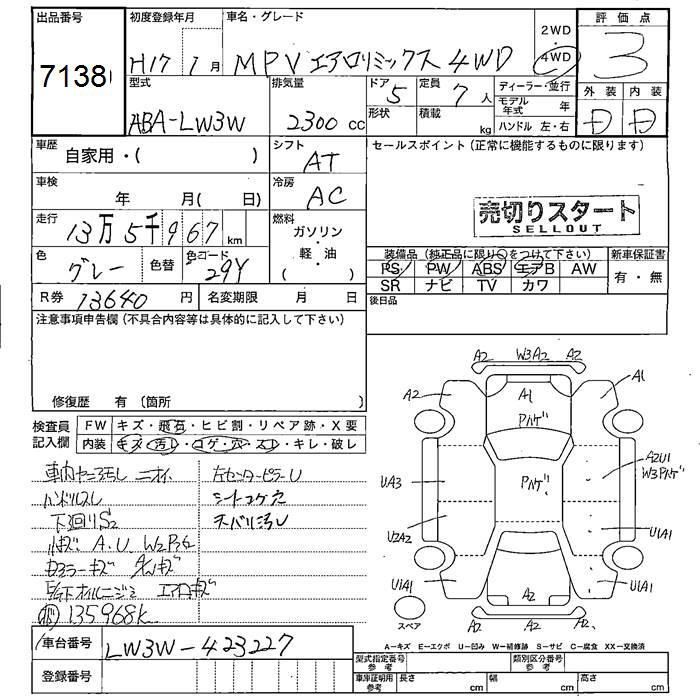 出品番号 初度登録年月 車名・グレード 2WD ・ 4WD 評価点
7138 H17 1月 MPV エアロリミックス 4WD 3
型式 排気量 ドア 定員 ディーラー・並行 外装 内装
ABA-LW3W 2300 cc 5 7人 モデル年式 年 D D
形状 積載 kg ハンドル 左・右
車歴 自家用・( ) シフト AT セールスポイント(正常に機能するものに限ります)
車検 年 月( 日) 冷房 AC
売切りスタート
SELLOUT
走行 13万5千967 km 燃料 ガソリン・軽油 ( )
色 グレー 色替 色コード 29Y
装備品(純正品に限り○をつけて下さい) 新車保証書
PS PW ABS エアB AW 有・無
SR ナビ TV カワ
R券 13640 円 名変期限 月 日 後日品
注意事項申告欄(不具合内容等は具体的に記入して下さい)
修復歴 有(箇所 )
検査員記入欄 FW キズ・飛石・ヒビ割・リペア跡・X要
内装 キズ・汚レ・コゲ・穴・スレ・キレ・破レ
車内ヤニ汚レ ニオイ 左センターピラーU
ハンドルスレ シートコゲ穴
下廻りS2 天バリ汚レ
小キズ A.U W2
135968k
車台番号 LW3W-423227
登録番号
A2 W3A2 A2
A2 A1 A1
Pハゲ
UA3 Pハゲ A2U1
W3Pハゲ
U2A2 U1A1
U1A1 A2 U1A1
A2 A2 A2
スペア
A-キズ E-エクボ U-凹み W-補修跡 S-サビ C-腐食 XX-交換済
型式指定番号 参考 類別区分番号 参考
車庫証明用 参考 長さ cm 幅 cm 高さ cm